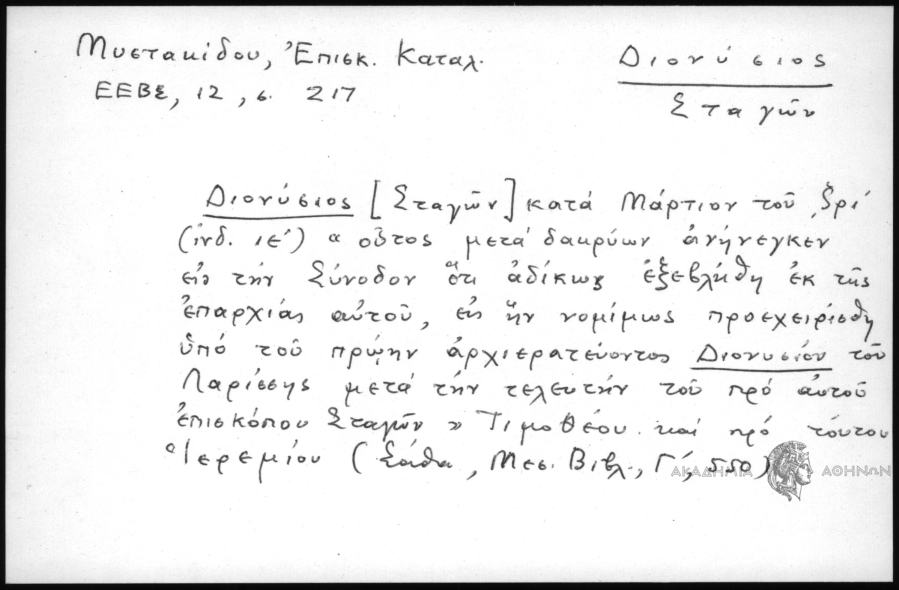 Μυστακίδου, Ἐπισκ. Καταλ.
ΕΕΒΣ, 12, σ. 217
Διονύσιος
Σταγῶν
Διονύσιος [Σταγῶν] κατά Μάρτιον τοῦ ͵ζρί
(ἰνδ. ιε') « οὗτος μετά δακρύων ἀνήνεγκεν
εἰς τήν Σύνοδον ὅτι ἀδίκως ἐξεβλήθη ἐκ τῆς
ἐπαρχίας αὐτοῦ, εἰς ἥν νομίμως προεχειρίσθη
ὑπό τοῦ πρώην ἀρχιερατεύοντος Διονυσίου τοῦ
Λαρίσσης μετά τήν τελευτήν τοῦ πρό αὐτοῦ
ἐπισκόπου Σταγῶν » Τιμοθέου. καί πρό τούτου
Ἱερεμίου (Σάθα, Μεσ. Βιβλ., Γ', 550)
ΑΚΑΔΗΜΙΑ ΑΘΗΝΩΝ